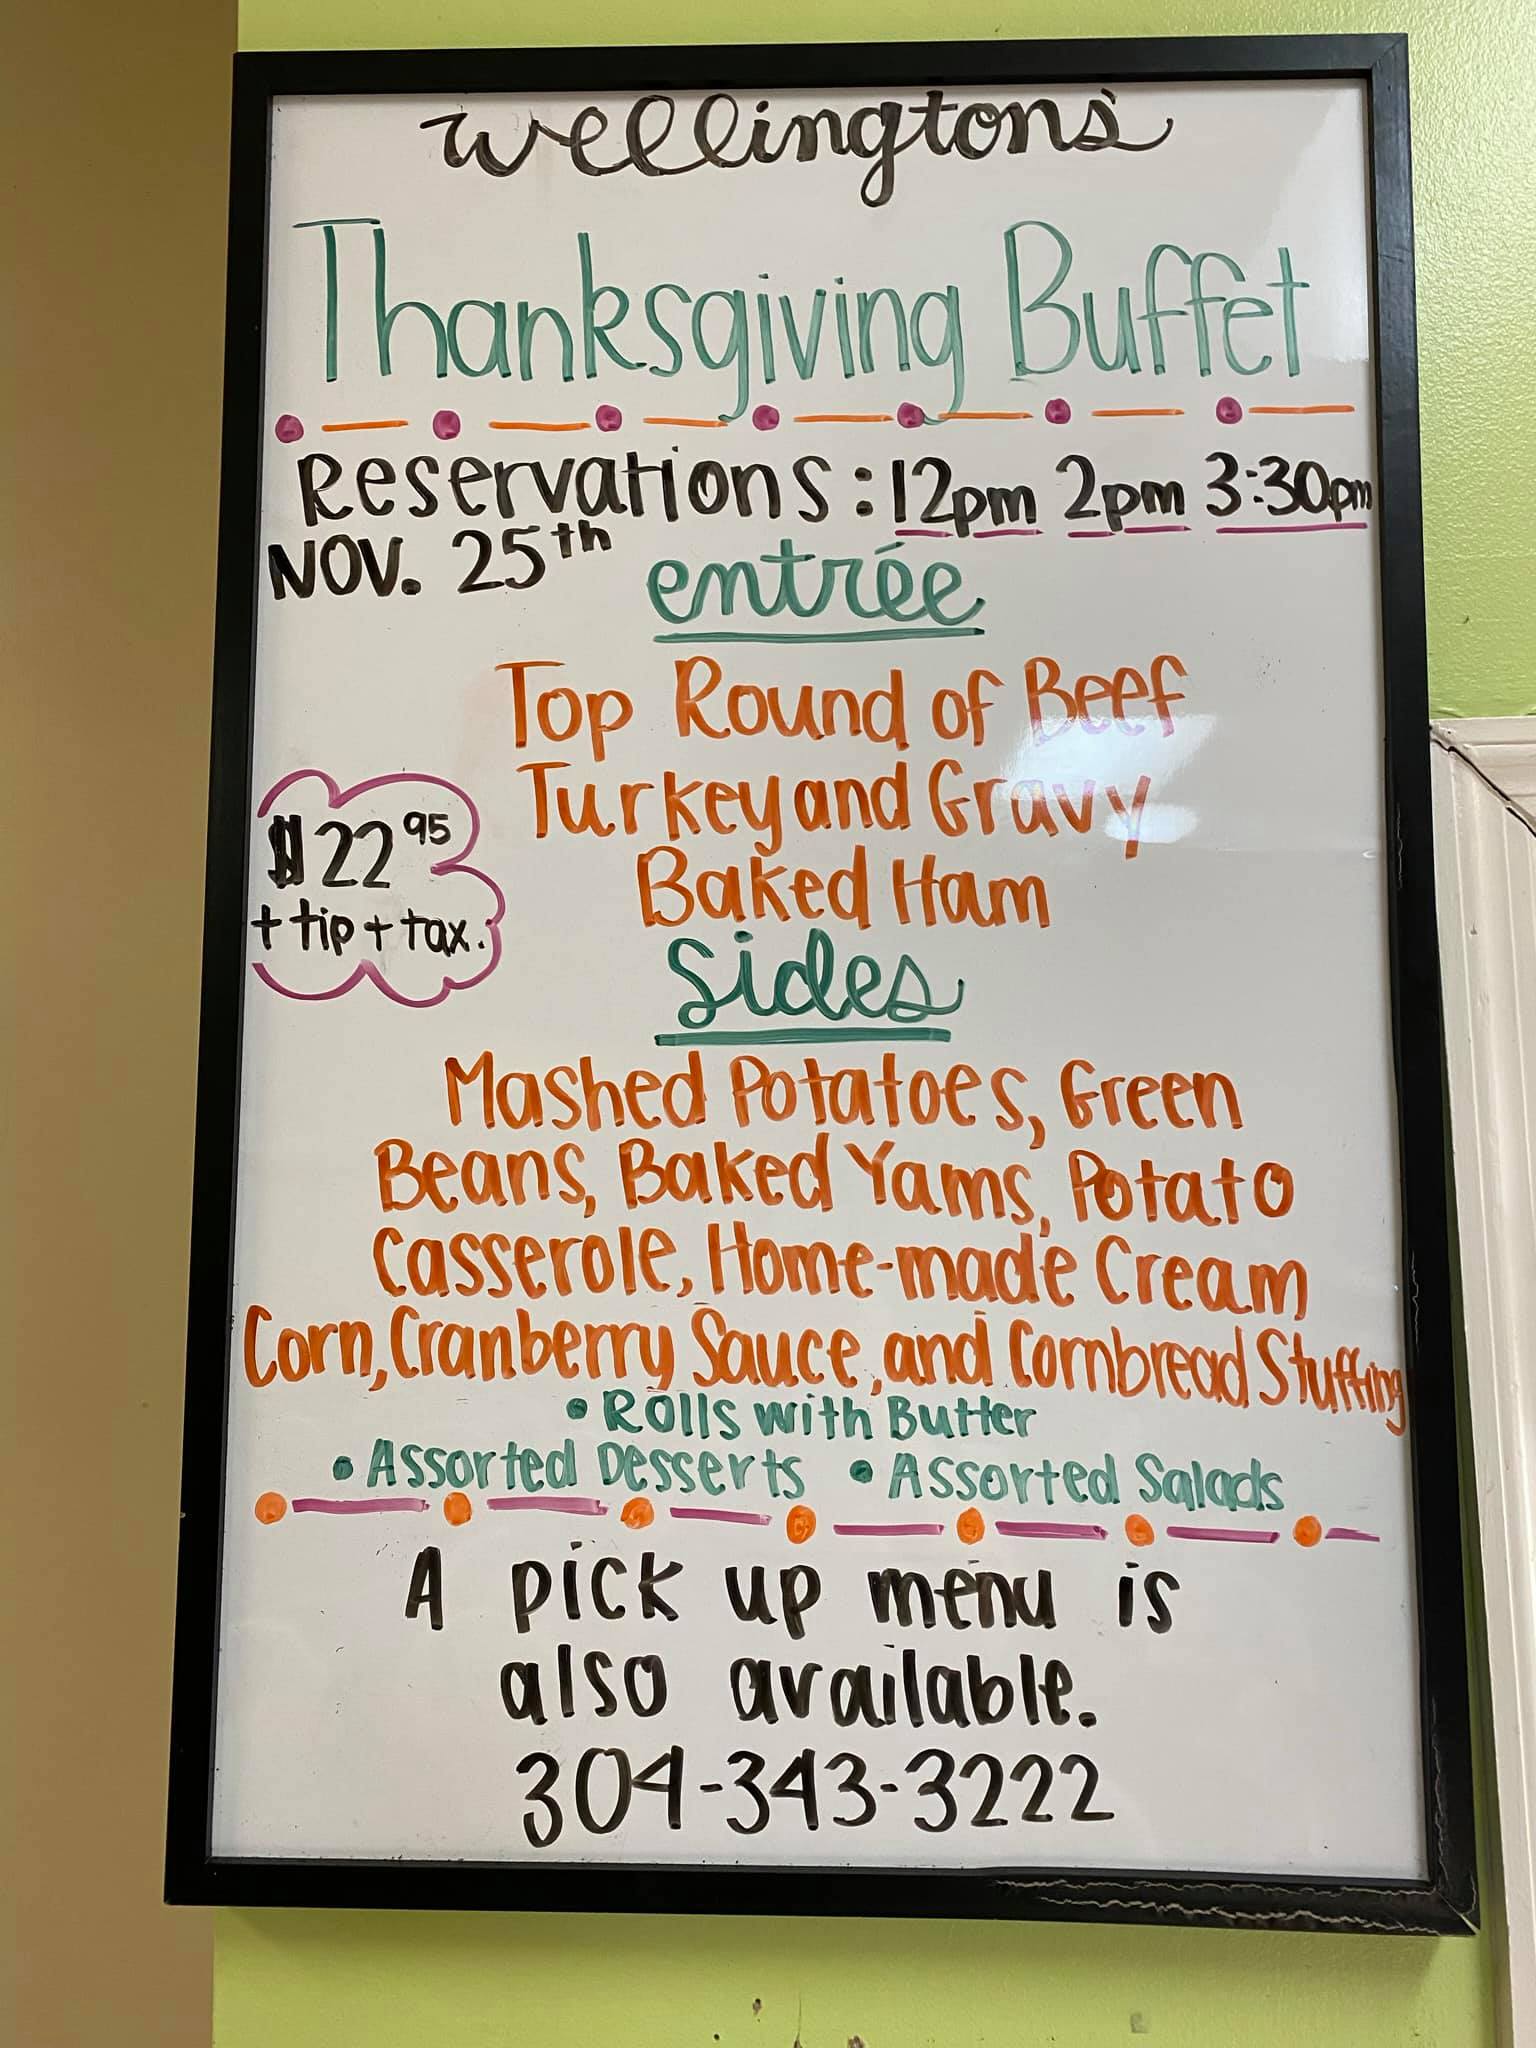 Wellington's
Thanksgiving Buffet
Reservations: 12pm 2pm 3:30pm
Nov. 25th
entrée
Top Round of Beef
Turkey and Gravy
Baked Ham
$22 95
+ tip + tax.
Sides
Mashed Potatoes, Green
Beans, Baked Yams, Potato
Casserole, Home-made Cream
Corn, Cranberry Sauce, and Cornbread Stuffing
• Rolls with Butter
• Assorted Desserts • Assorted Salads
A pick up menu is
also available.
304-343-3222